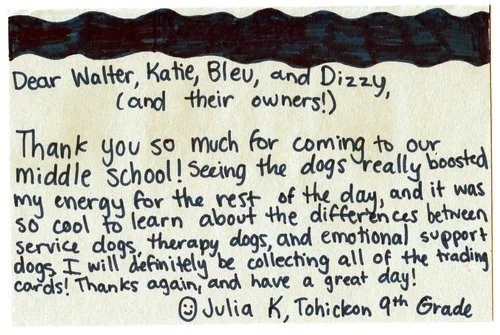 Dear Walter, Katie, Bleu, and Dizzy,
(and their owners!)
Thank you so much for coming to our
middle school! Seeing the dogs really boosted
my energy for the rest of the day, and it was
so cool to learn about the differences between
service dogs, therapy dogs, and emotional support
dogs. I will definitely be collecting all of the trading
cards! Thanks again, and have a great day!
☺ Julia K, Tohickon 9th Grade